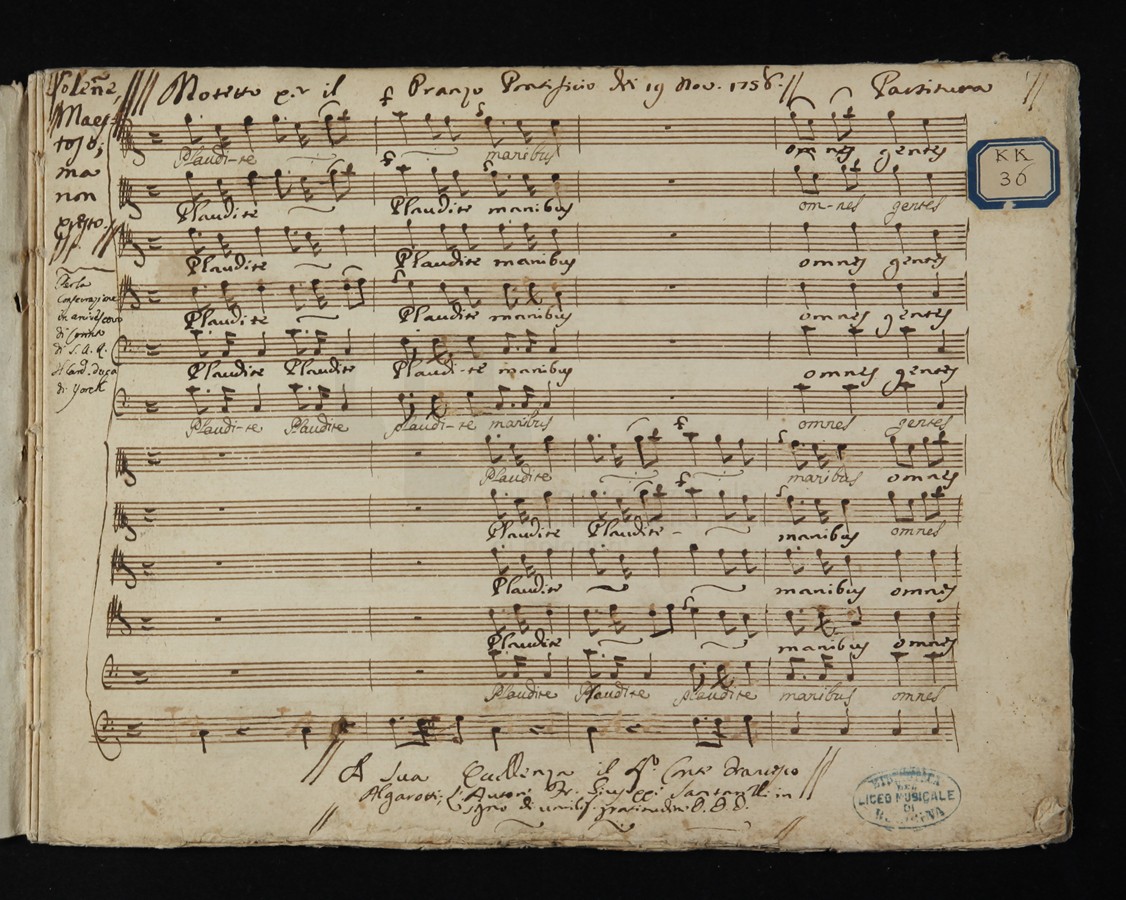 Solenne,
Maes-
toso;
ma
non
presto.
Motetto p.r il Pranzo Pontificio dei 19 Nov. 1756. Partitura
Per la
Consecrazione
di S. A. R.
di Yorck
KK
36
Plaudi-te manibus omnes gentes
Plaudite Plaudite manibus om-nes gentes
Plaudite Plaudite manibus omnes gentes
Plaudite Plaudite manibus omnes gentes
Plaudite Plaudite Plaudi-te manibus omnes gentes
Plaudi-te Plaudite plaudi-te manibus omnes gentes
Plaudite manibus omnes
Plaudite Plaudite - manibus omnes
Plaudite manibus omnes
Plaudite manibus omnes
Plaudite Plaudite plaudite manibus omnes
A Sua Eccellenza il Conte Francesco
Algarotti; l'Autore Giuseppe Santarelli in
segno di umiliss. gratitudine D. D. D.
BIBLIOTECA
DEL
LICEO MUSICALE
DI
BOLOGNA